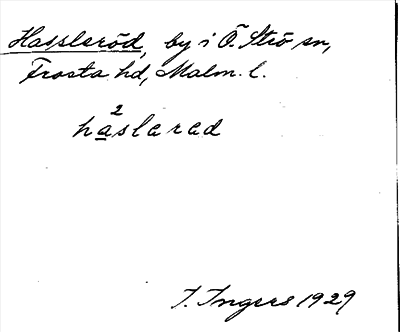 Hassleröd, by i Ö. Strö sn,
Frosta hd, Malm. l.
2
haslarad
I. Ingers 1929